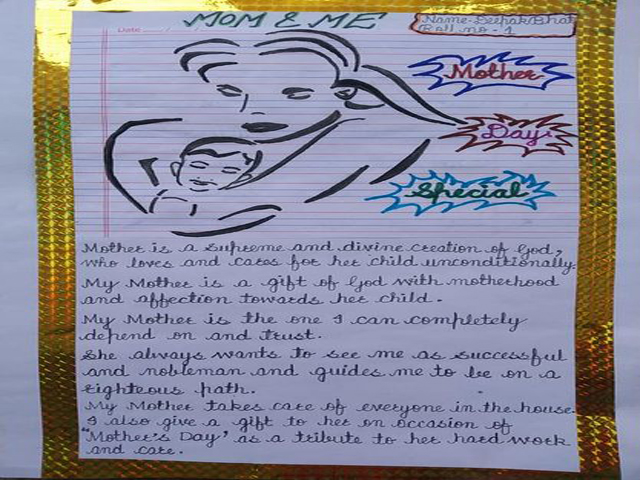 MOM & ME
Name-Deepak Bhat
Roll no - 1
Date
Mother
Day
Special
Mother is a supreme and divine creation of God,
who loves and cares for her child unconditionally.
My Mother is a gift of God with motherhood
and affection towards her child.
My Mother is the one I can completely
depend on and trust.
She always wants to see me as successful
and nobleman and guides me to be on a
righteous path.
My Mother takes care of everyone in the house.
I also give a gift to her on occasion of
"Mother's Day' as a tribute to her hard work
and care.